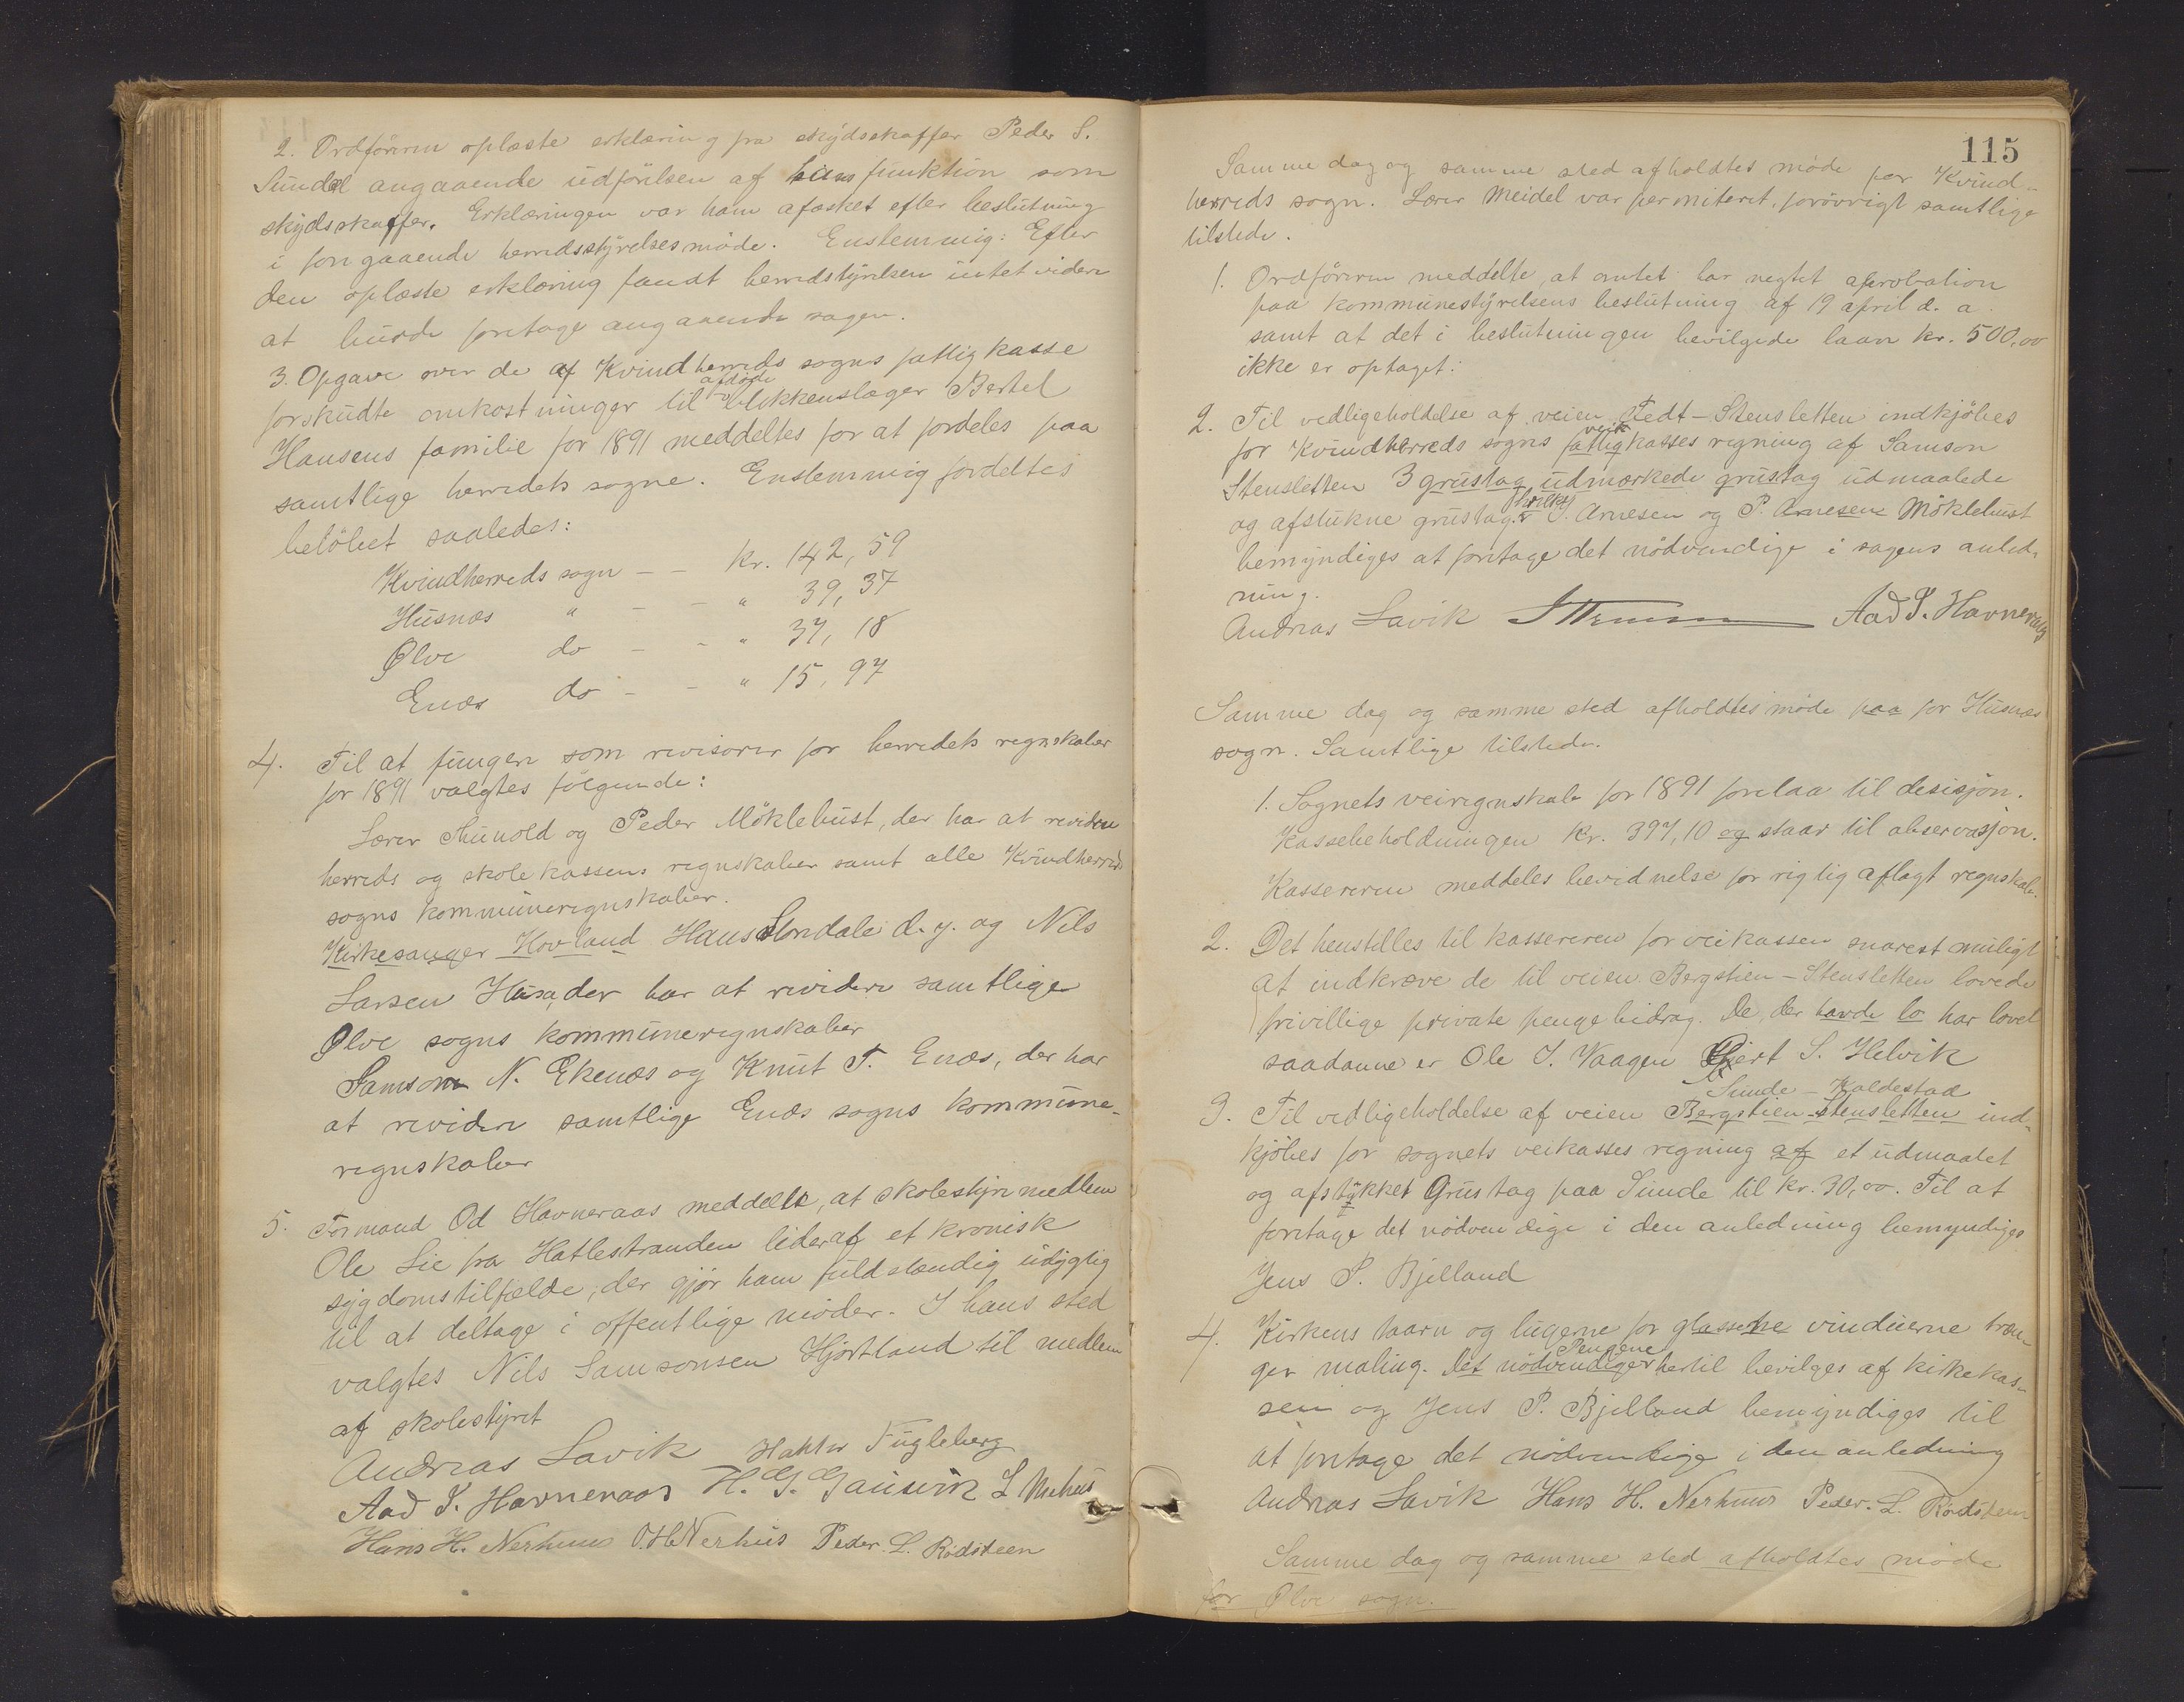 2. Ordføreren oplæste erklæring fra skydsskaffer Peder S.
Sundal angaaende udførelsen af hans funktion som
skydsskaffer. Erklæringen var ham afæsket efter beslutning
i foregaaende herredsstyrelsesmøde. Enstemmig: Efter
den oplæste erklæring fandt herredsstyrelsen intet videre
at burde foretage angaaende sagen.
3. Opgave over de af Kvindherreds sogns fattigkasse
forskudte omkostninger til afdøde blikkenslager Bertel
Hansens familie for 1891 meddeltes for at fordeles paa
samtlige herredets sogne. Enstemmig fordeltes
beløbet saaledes:
Kvindherreds sogn - - kr. 142,59
Husnæs " - - " 39,37
Ølve do - - " 37,18
Enæs do - - " 15,97
4. Til at fungere som revisorer for herredets regnskaber
for 1891 valgtes følgende:
Lærer Thunold og Peder Møklebust, der har at revidere
herreds og skolekassens regnskaber samt alle Kvindherreds
sogns kommuneregnskaber.
Kirkesanger Hovland Hans Slondale d.y. og Nils
Larsen Husa, der har at revidere samtlige
Ølve sogns kommuneregnskaber
Samson N. Ekenæs og Knut T. Enæs, der har
at revidere samtlige Enæs sogns kommune-
regnskaber
5. Formand Od Havneraas meddelte, at skolestyremedlem
Ole Lie fra Hatlestranden lider af et kronisk
sygdomstilfælde, der gjør ham fuldstændig udygtig
til at deltage i offentlige møder. I hans sted
valgtes Nils Samsonsen Hjortland til medlem
af skolestyret
Andreas Lavik Haktor Fugleberg
Aad T. Havneraas H. G. Gausvik L Mehus
Hans H. Nerhuus O.H.Nerhus Peder. L. Rødsteen
115
Samme dag og samme sted afholdtes møde for Kvind-
herreds sogn. Lærer Meidel var permiteret, forøvrigt samtlige
tilstede.
1. Ordføreren meddelte, at amtet har negtet aprobation
paa kommunestyrelsens beslutning af 19 april d. a.
samt at det i beslutningen bevilgede laan kr. 500,00
ikke er optaget.
2. Til vedligeholdelse af veien Tedt-Stensletten indkjøbes
for Kvindherreds sogns fattig veikasses regning af Samson
Stensletten 3 grustag udmærkede grustag udmaalede
og afstukne grustag. hvilke J. Arnesen og P. Arnesen Møklebust
bemyndiges at foretage det nødvendige i sagens anled-
ning.
Andreas Lavik Aad T. Havneraas
Samme dag og samme sted afholdtes møde paa for Husnæs
sogn. Samtlige tilstede.
1. Sognets veiregnskab for 1891 forelaa til desisjon.
Kassebeholdningen kr. 397,10 og staar til observasjon.
Kassereren meddeles bevidnelse for rigtig aflagt regnskab.
2. Det henstilles til kassereren for veikassen snarest muligt
at indkræve de til veien Bergstien-Stensletten lovede
frivillige private pengebidrag. De, der havde lo har lovet
saadanne er Ole I. Vaagen Sjert S. Helvik
Sunde - Kaldestad
3. Til vedligeholdelse af veien Bergstien-Stensletten ind-
kjøbes for sognets veikasses regning af et udmaalet
og afstykket Grustag paa Sunde til kr. 30,00. Til at
foretage det nødvendige i den anledning bemyndiges
Jens P. Bjelland
4. Kirkens taarn og lugerne for glassene vinduerne træn-
ger maling. Det nødvendige Pengene hertil bevilges af kirkekas-
sen og Jens P. Bjelland bemyndiges til
at foretage det nødvendige i den anledning
Andreas Lavik Hans H. Nerhuus Peder. L. Rødsteen
Samme dag og samme sted afholdtes møde
for Ølve sogn.